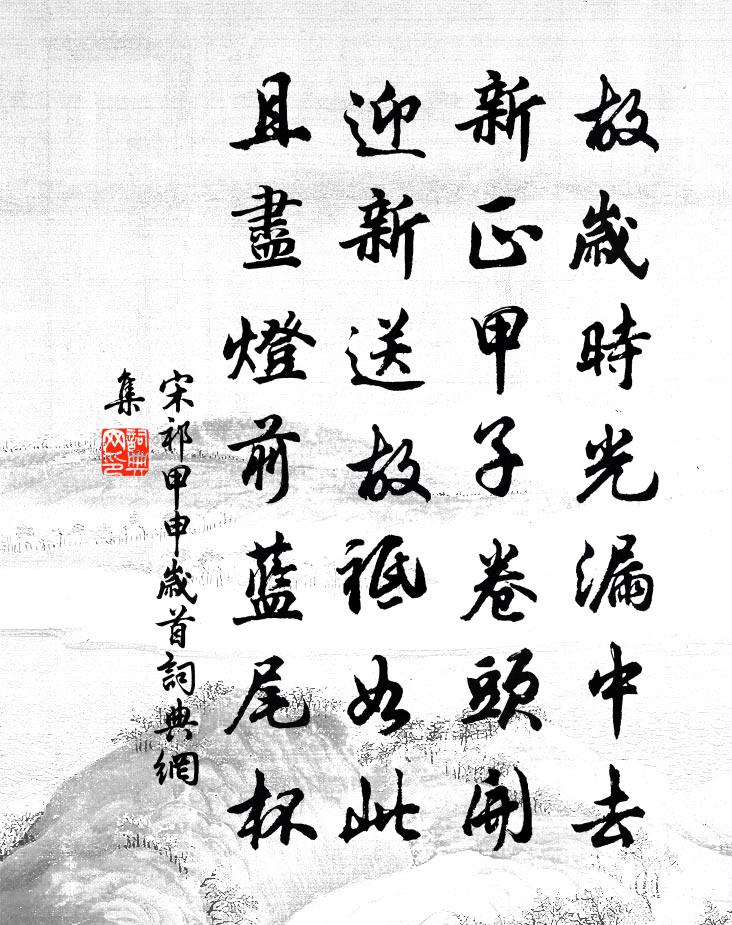 故歲時光漏中去
新正甲子卷頭開
迎新送故祗如此
且盡燈前藍尾杯
宋祁甲申歲首詞典網
集
詞典網印